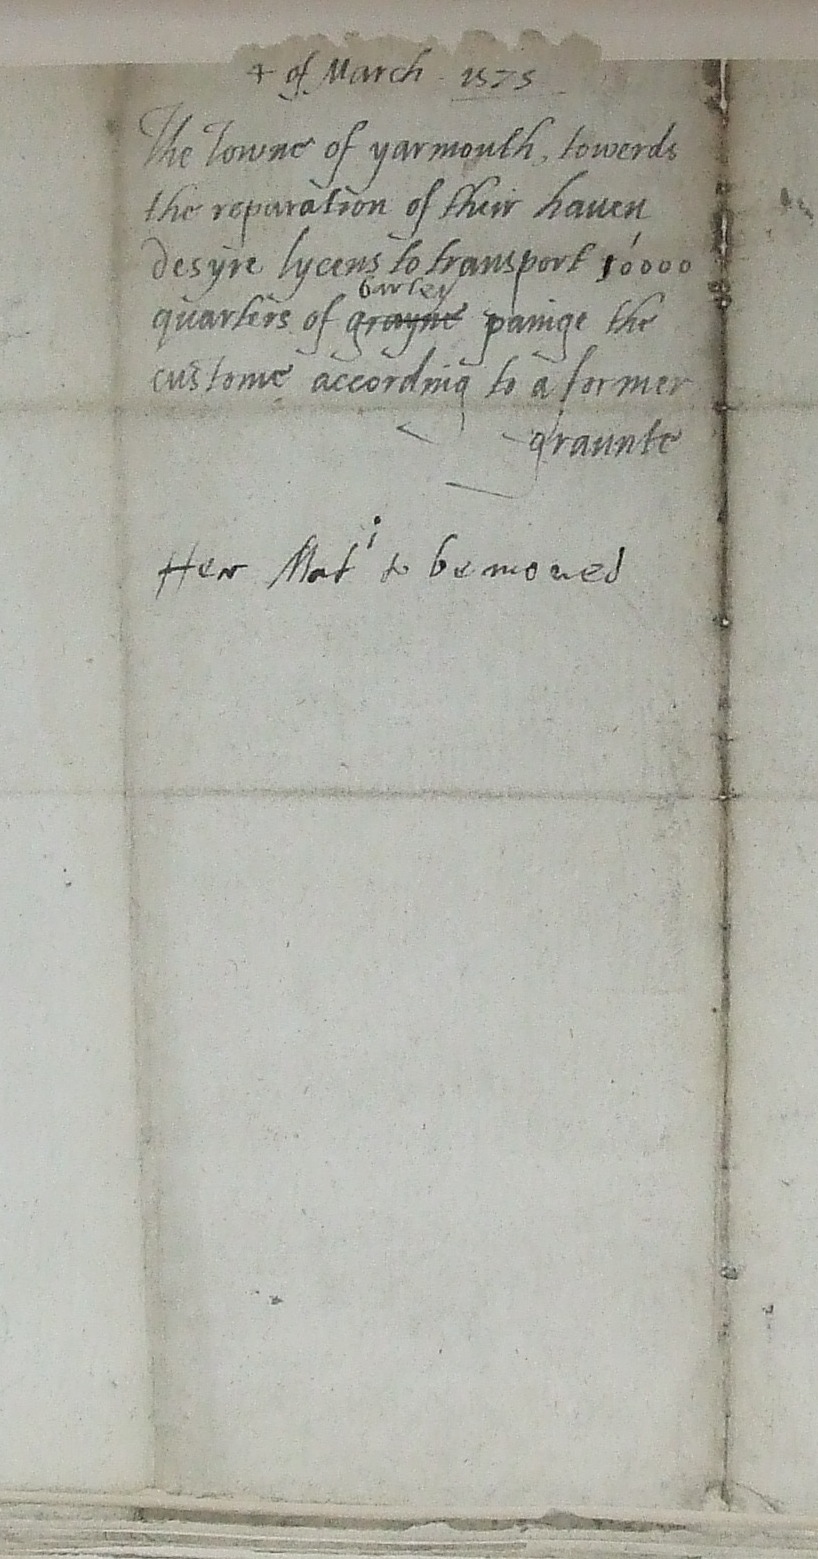 4 of March 1575
The Towne of yarmouth, towerds
the reparation of their hauen
desyre lycens to transport 10000
barley
quarters of grayne painge the
custome according to a former
graunte
Her Mati to be moued